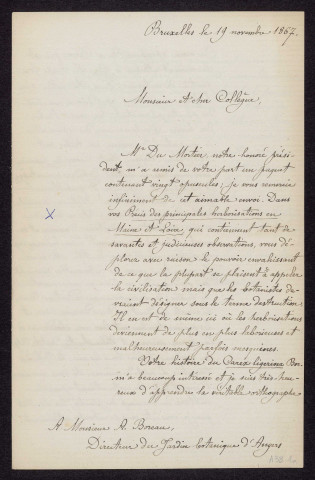 Bruxelles le 19 novembre 1867.
Monsieur et cher Collègue,
Mr Du Mortier, notre honoré prési-
dent, m'a remis de votre part un paquet
contenant vingt opuscules; je vous remercie
infiniment de cet aimable envoi. Dans
vos Précis des principales herborisations en
Maine et Loire qui contiennent tant de
savantes et judicieuses observations, vous dé-
plorez avec raison le pouvoir envahissant
de ce que la plupart se plaisent à appeler
la civilisation mais que les botanistes de-
vraient désigner sous le terme destruction.
Il en est de même ici où les herborisations
deviennent de plus en plus laborieuses et
malheureusement parfois
Votre histoire du Carex ligerina Bor.
m'a beaucoup intéressé et je suis très heu-
reux d'apprendre la véritable orthographe
A Monsieur A. Boreau,
Directeur du Jardin botanique d'Angers